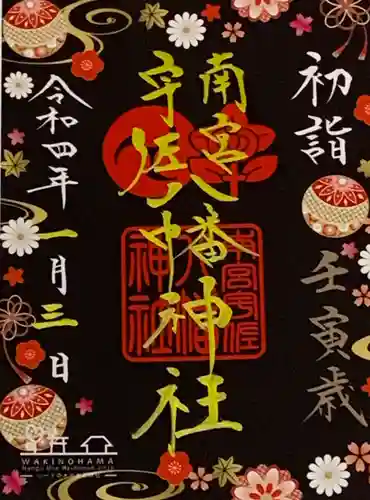 初詣
壬寅歳
南宮
宇佐八幡神社
令和四年一月三日
WAKINOHAMA